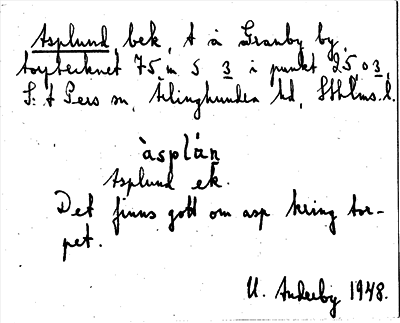 Asplund, bek, t å Granby by,
torptecknet 75 m S 3 i punkt 25,03,
S:t Pers sn, Ærlinghundra hd, Sthlms. l.
àsplán
Asplund ek.
Det finns gott om asp kring tor-
pet.
U. Anderby 1948.